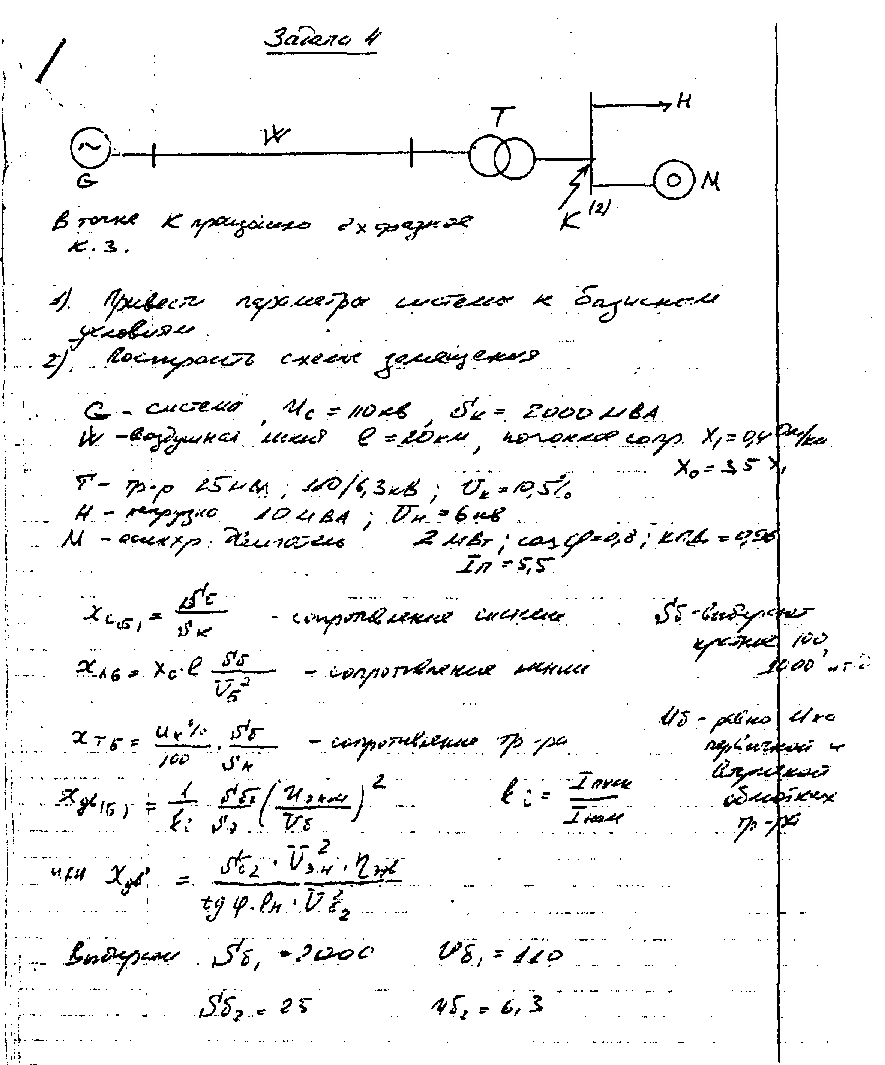 Задача 4
G W T K (2) H M
В точке К произошло 2х фазное
к.з.
1). Привести параметры системы к базисным
условиям
2). Построить схемы замещения
G - система, Uc = 110 кВ, Sк = 2000 МВА
W - воздушная линия l = 20 км, погонное сопр. X₁ = 0,4 Ом/км
X₀ = 3,5 X₁
Т - тр-р 25 МВА; 110/6,3 кВ; Uк = 10,5%
Н - нагрузка 10 МВА; Uн = 6 кВ
М - асинхр. двигатель 2 МВт; cos φ = 0,8; кпд. = 0,96
Iп = 5,5
Xс(б) = Sб / Sк - сопротивление системы
Sб - выбирают
кратное 100
1000 и т.д
Xлб = X₀·l Sб / Uб² - сопротивление линии
Xтб = Uк% / 100 · Sб / Sн - сопротивление тр-ра
Uб - равно U на
первичной и
вторичной
обмотках
тр-ра
Xдв(б) = 1/ki Sб/Sд (Uд ном / Uб)²
ki = Iпуск / Iном
или Xдв = Sб₂ · Uдн² · ηдв / tg φ · Pн · Uб₂²
Выбираем Sб₁ = 2000 Uб₁ = 110
Sб₂ = 25 Uб₂ = 6,3